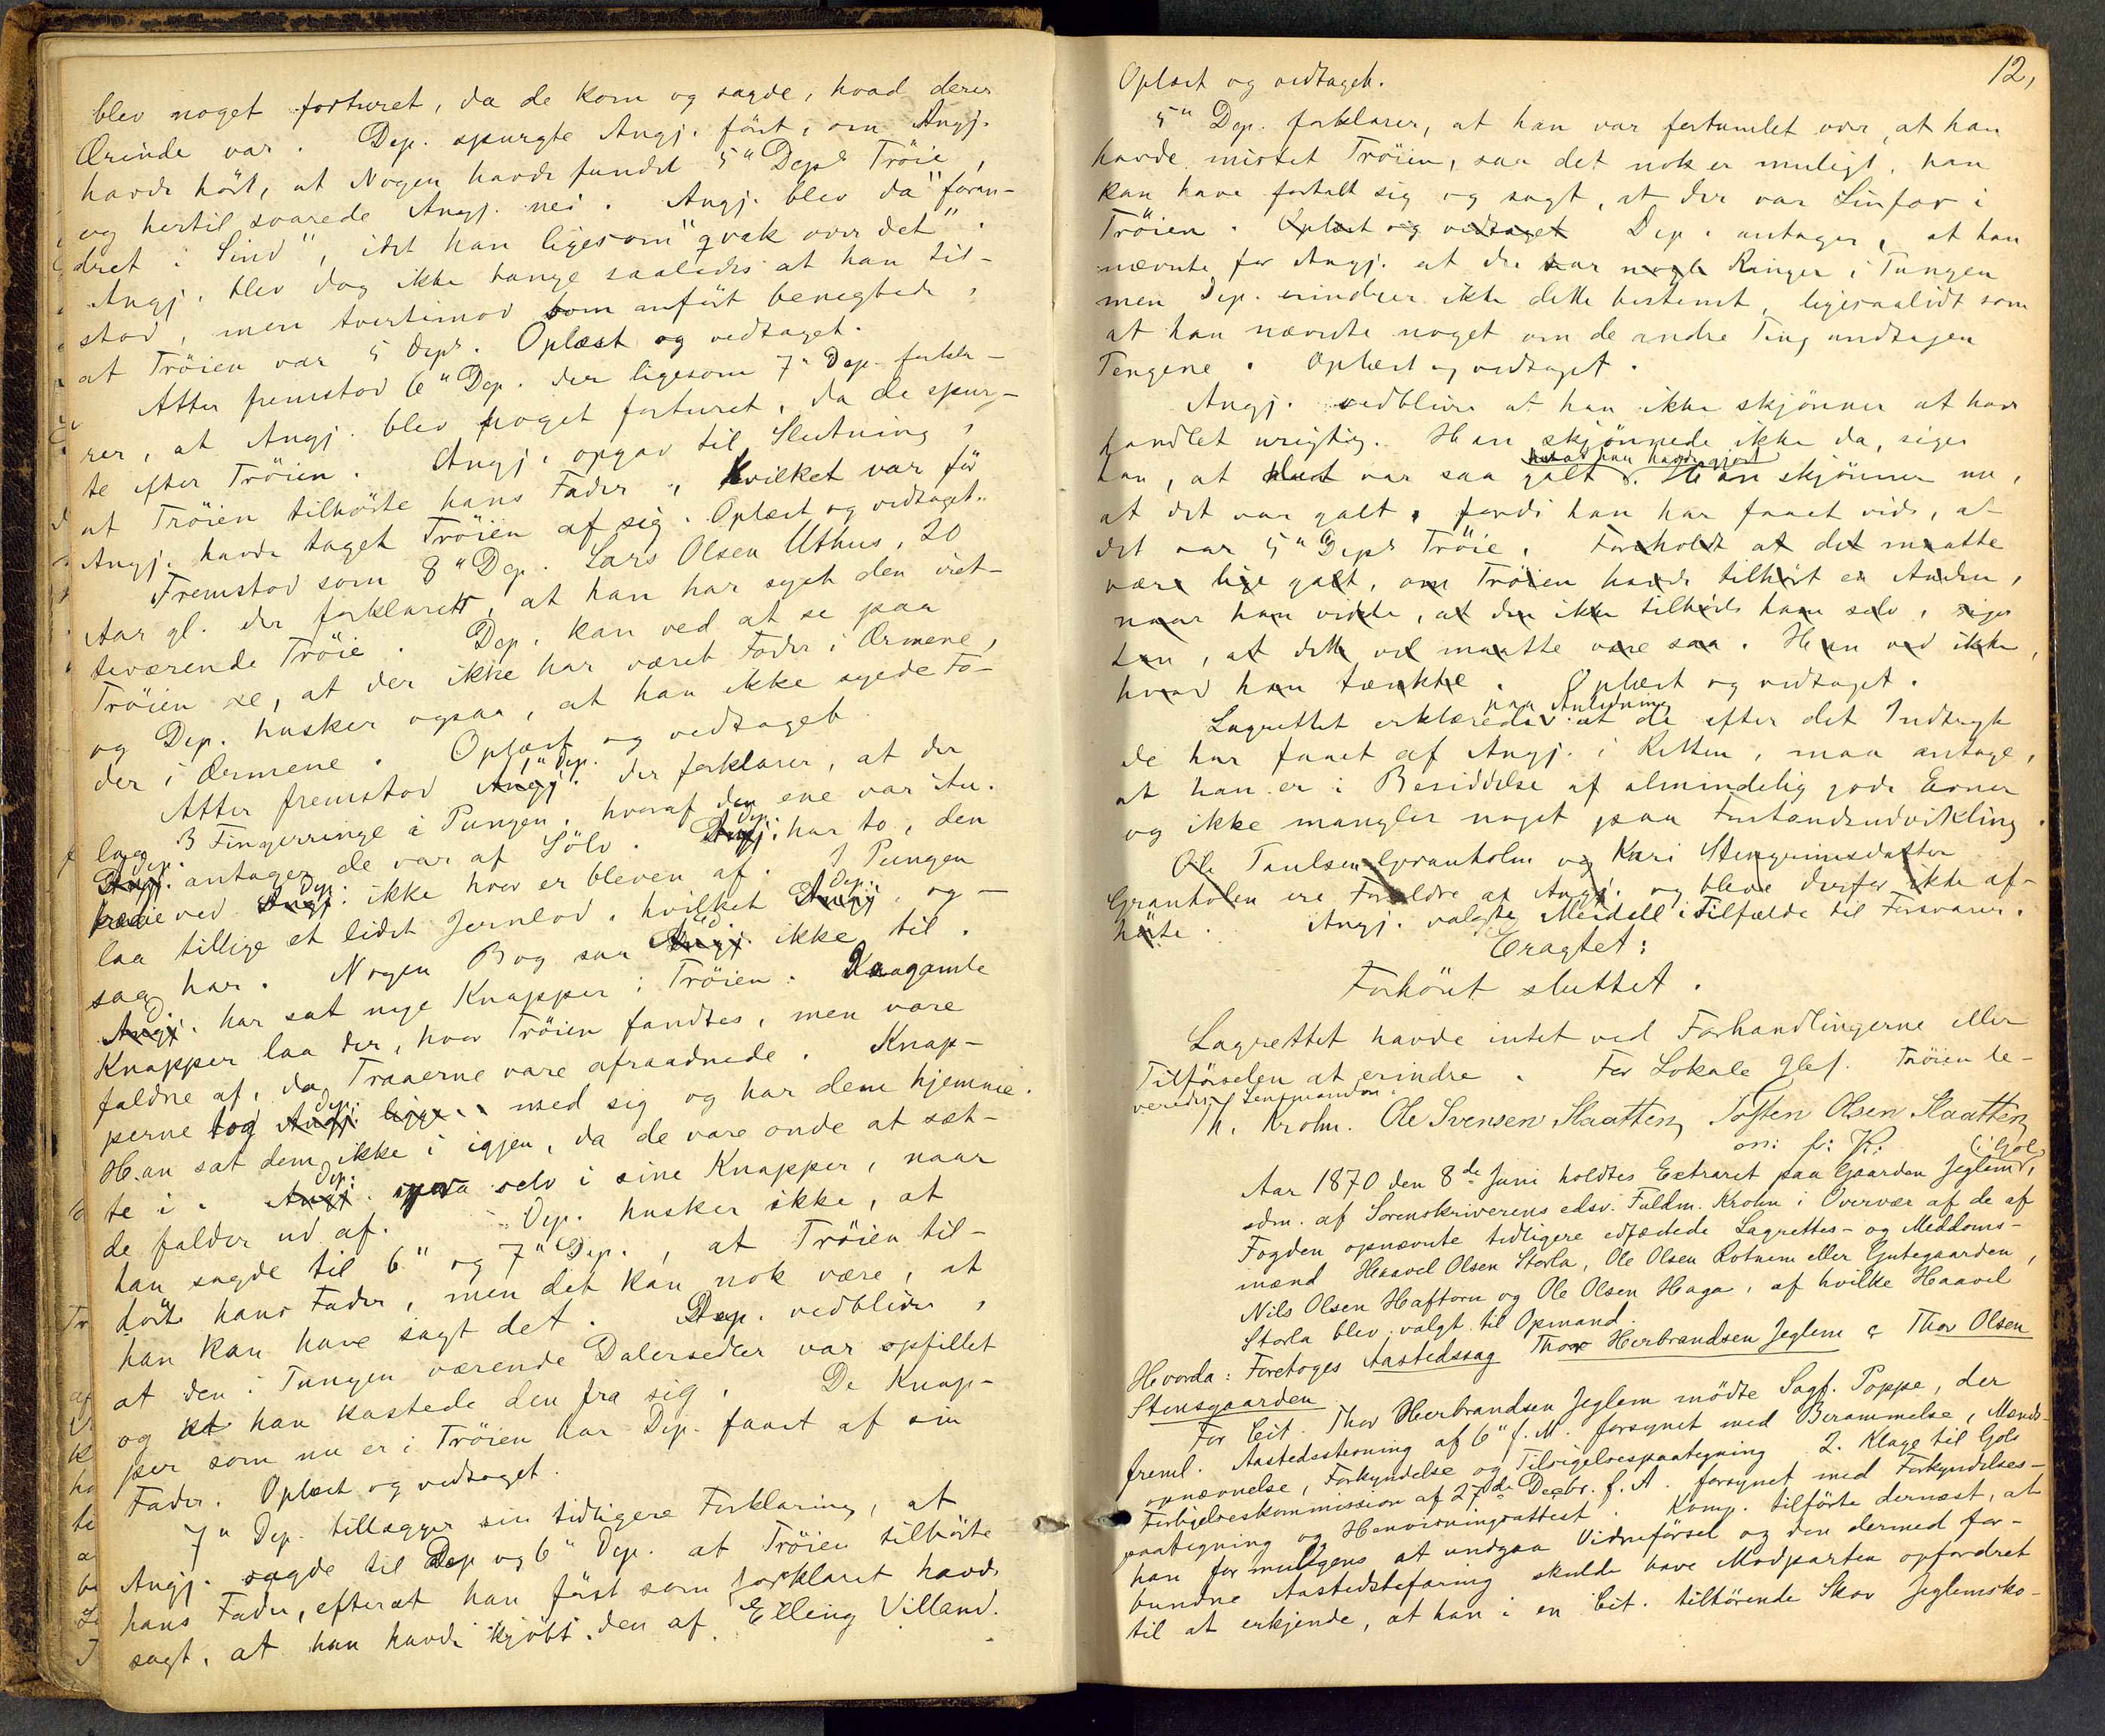 blev noget forturet, da de kom og sagde, hvad deres
Ærinde var. Dep. spurgte Angj. först, om Angj.
havde hört, at Nogen havde fundet 5" Deps Tröie,
og hertil svarede Angj. nei. Angj. blev da "foran-
dret i Sind", idet han ligesom "qvak over det".
Angj. blev dog ikke bange saaledes at han til-
stod, men tvertimod som anfört benegtede,
at Tröien var 5 Deps. Oplæst og vedtaget.
Atter fremstod 6" Dep. der ligesom 7" Dep. forkla-
rer, at Angj. blev noget forturet, da de spurg-
te efter Tröien. Angj. opgav til Slutning,
at Tröien tilhörte hans Fader, hvilket var för
Angj. havde taget Tröien af sig. Oplæst og vedtaget.
Fremstod som 8" Dep. Lars Olsen Uthus, 20
Aar gl. der forklarer, at han har syet den iret-
teværende Tröie. Dep. kan ved at se paa
Tröien se, at der ikke har været Foder i Ærmene,
og Dep. husker ogsaa, at han ikke syede Fo-
der i Ærmene. Oplæst og vedtaget.
1" Dep.
Atter fremstod Angj. der forklarer, at der
laa 3 Fingerringe i Pungen, hvoraf den ene var itu.
Dep. Dep.
Angj. antager de var af Sölv. Angj. har to, den
Dep.
tredie ved Angj. ikke hvor er bleven af. I Pungen
Dep.
laa tillige et lidet Jernlod, hvilket Angj. og-
D.
saa har. Nogen Bog saa Angj. ikke til.
D.
Angj. har sat nye Knapper i Tröien. De gamle
Knapper laa der, hvor Tröien fandtes, men vare
faldne af, da Traaerne vare afraadnede. Knap-
Dep.
perne tog Angj. ligge med sig og har dem hjemme.
Han sat dem ikke i igjen, da de vare onde at sæt-
Dep.
te i. Angj. selv i sine Knapper, naar
de falder ud af. Dep. husker ikke, at
han sagde til 6" og 7" Dep., at Tröien til-
hörte hans Fader, men det kan nok være, at
han kan have sagt det. Dep. vedbliver,
at den i Pungen værende Dalerseddel var opfillet
og at han kastede den fra sig. De Knap-
per som nu er i Tröien har Dep. faaet af sin
Fader. Oplæst og vedtaget.
7" Dep. tillægger sin tidligere Forklaring, at
Angj. sagde til Dep og 6" Dep. at Tröien tilhörte
hans Fader, efterat han först som forklaret havde
sagt, at han havde kjöbt den af Elling Villand.
12,
Oplæst og vedtaget.
5" Dep. forklarer, at han var fortumlet over, at han
havde mistet Tröien, saa det nok er muligt, han
kan have fortalt sig og sagt, at der var Linfor i
Tröien. Oplæst og vedtaget Dep. antager, at han
nævnte for Angj. at der var nogle Ringer i Pungen
men Dep. erindrer ikke dette bestemt, ligesaalidt som
at han nævnte noget om de andre Ting undtagen
Pengene. Oplæst og vedtaget.
Angj. vedbliver at han ikke skjönner at have
handlet urigtig. Han skjönnede ikke da, siger
hvad han havde gjort
han, at det var saa galt. Han skjönner nu,
at det var galt, fordi han har faaet vide, at
det var 5" Deps Tröie. Foreholdt at det maatte
være lige galt, om Tröien havde tilhört en Anden,
naar han vidste, at den ikke tilhörte ham selv, siger
han, at dette vel maatte være saa. Han ved ikke,
hvad han tænkte. Oplæst og vedtaget.
paa Anledning
Lagrettet erklærede at de efter det Indtryk
de har faaet af Angj. i Retten, maa antage,
at han er i Besiddelse af almindelig gode Evner
og ikke mangler noget paa Forstandsudvikling.
Ole Paulsen Granholm og Kari Stengrimsdatter
Granholen ere Forældre af Angj. og bleve derfor ikke af-
hörte. Angj. valgte Meidell i Tilfælde til Forsvarer.
Eragtet:
Forhöret sluttet.
Lagrettet havde intet ved Forhandlingerne eller
Tilförselen at erindre. For Lokale Glef. Tröien le-
veredes Lensmanden.
H. Krohn. Ole Svensen Slaatten Tosten Olsen Slaatten
m: f: P:
Aar 1870 den 8de Juni holdtes Extraret paa Gaarden Jeglem i Gol,
adm. af Sorenskriverens edsv. Fuldm. Krohn i Overvær af de af
Fogden opnævnte tidligere edfæstede Lagrettes- og Meddoms-
mænd Haavel Olsen Storla, Ole Olsen Rotnem eller Gutegaarden,
Nils Olsen Haftorn og Ole Olsen Haga, af hvilke Haavel
Storla blev valgt til Opmand.
Hvorda: Foretoges Aastedssag Thor Herbrandsen Jeglem ç Thor Olsen
Stensgaarden
For Cit. Thor Herbrandsen Jeglem mödte Sagf. Poppe, der
freml. Aastedsstevning af 6" f. M. forsynet med Berammelse, Mænds-
opnævnelse, Forkyndelse og Tilsigelsespaategning 2. Klage til Gols
Forligelseskommission af 27de Decbr. f. A. forsynet med Forkyndelses-
paategning og Henvisningsattest. Komp. tilförte dernæst, at
han for muligens at undgaa Vidneförsel og den dermed for-
bundne Aastedsbefaring skulde have Modparten opfordret
til at erkjende, at han i en Cit. tilhörende Skov Jeglemsko-